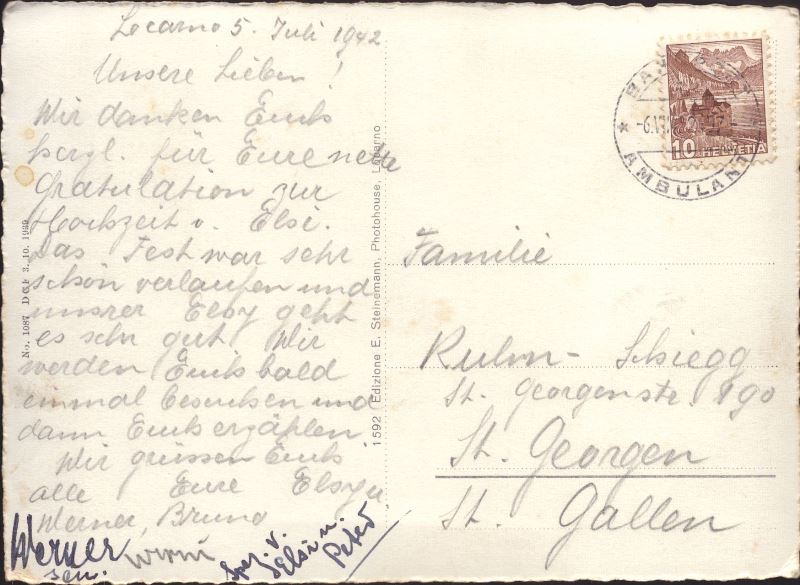 Locarno 5. Juli 1942
Unsere Lieben!
Wir danken Euch
herzl. für Eure nette
Gratulation zur
Hochzeit v. Elsi.
Das Fest war sehr
schön verlaufen und
unsrer Elsy geht
es sehr gut Wir
werden Euch bald
einmal besuchen und
dann Euch erzählen.
Wir grüssen Euch
alle Eure Elsy u
Werner, Bruno
Werner
sen.
Spez. v.
Elsi u.
Peter
No. 1087 D C F 3. 10. 1939
1592 Edizione E. Steinemann, Photohouse, Locarno
AMBULANT
10 HELVETIA
Familie
Kuhn- Schiegg
St. Georgenstr. 190
St. Georgen
St. Gallen